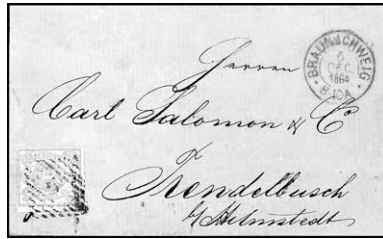 BRAUNSCHWEIG
6
DEC.
1864
8-10A.
Herren
Carl Salomon & C
Trendelbusch
b/Helmstedt